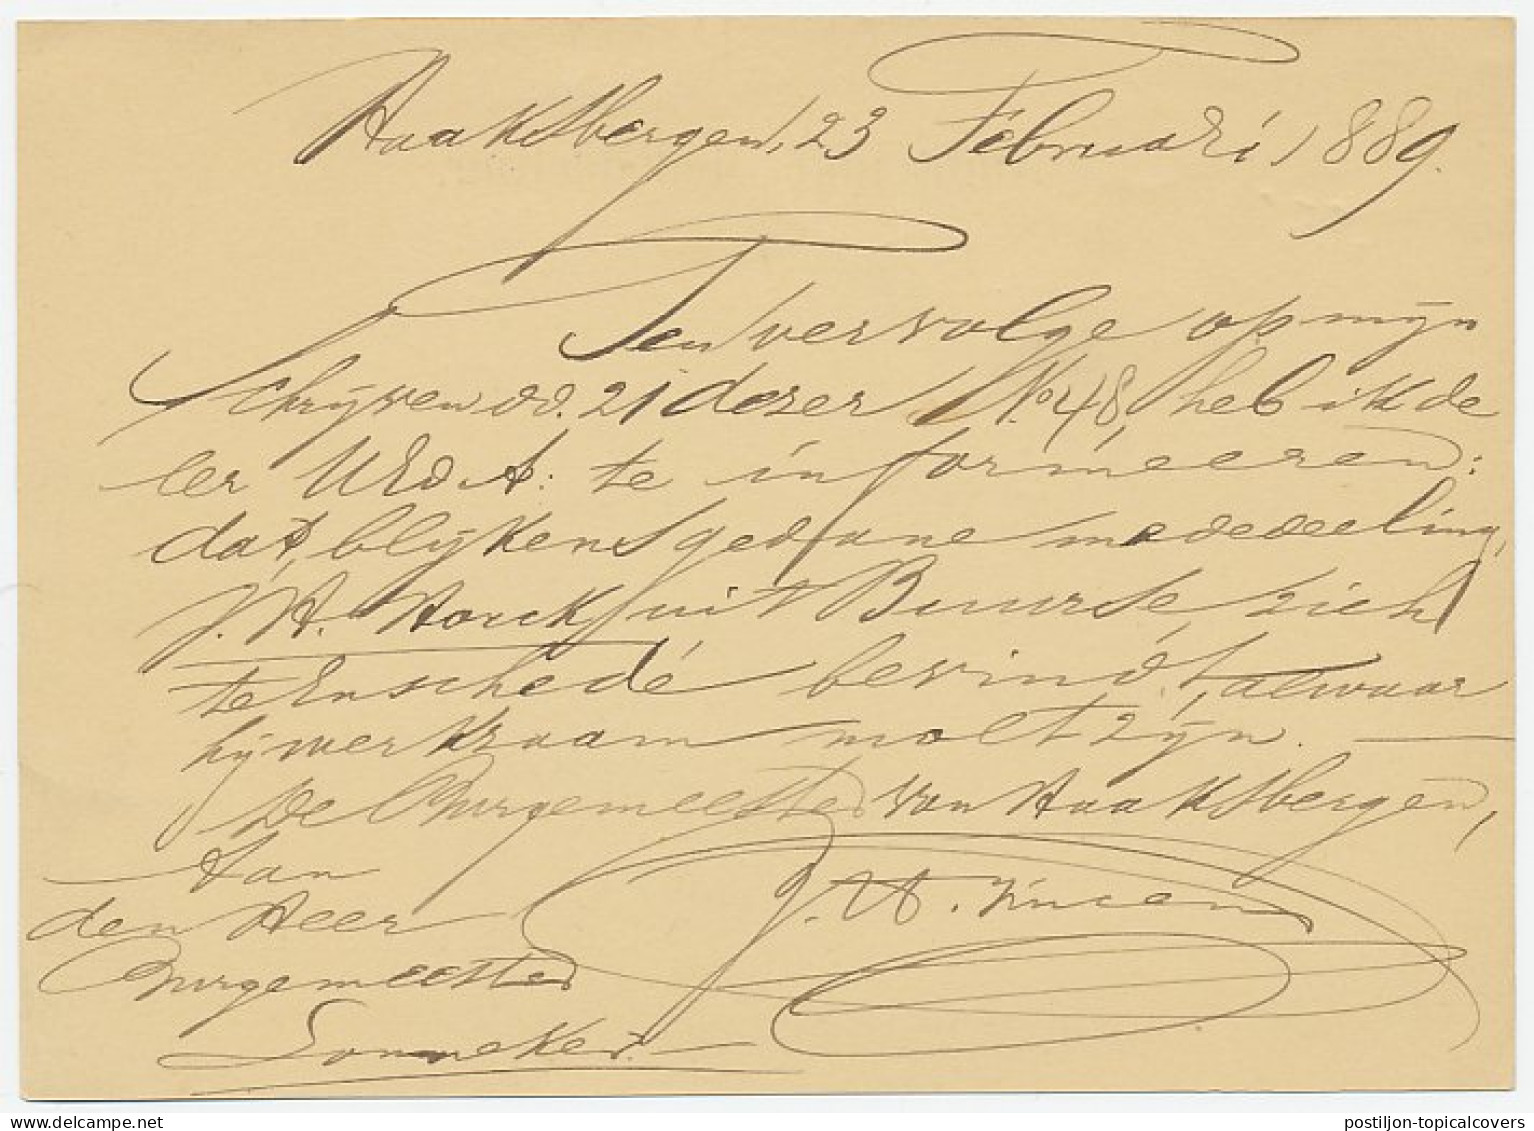 Haaksbergen, 23 Februari 1889.
Ten vervolge op mijn
Schrijven dd. 21 dezer No. 48, heb ik de
eer UEdA: te informeeren:
dat, blijkens gedane mededeeling,
J. H. Horck uit Buurse, zich
te Enschedé bevindt, alwaar
hij werkzaam molt zijn. —
De Burgemeester van Haaksbergen,
J. W.
Aan
den Heer
Burgemeester
Lonneker. —
delcampe.net
postiljon-topicalcovers